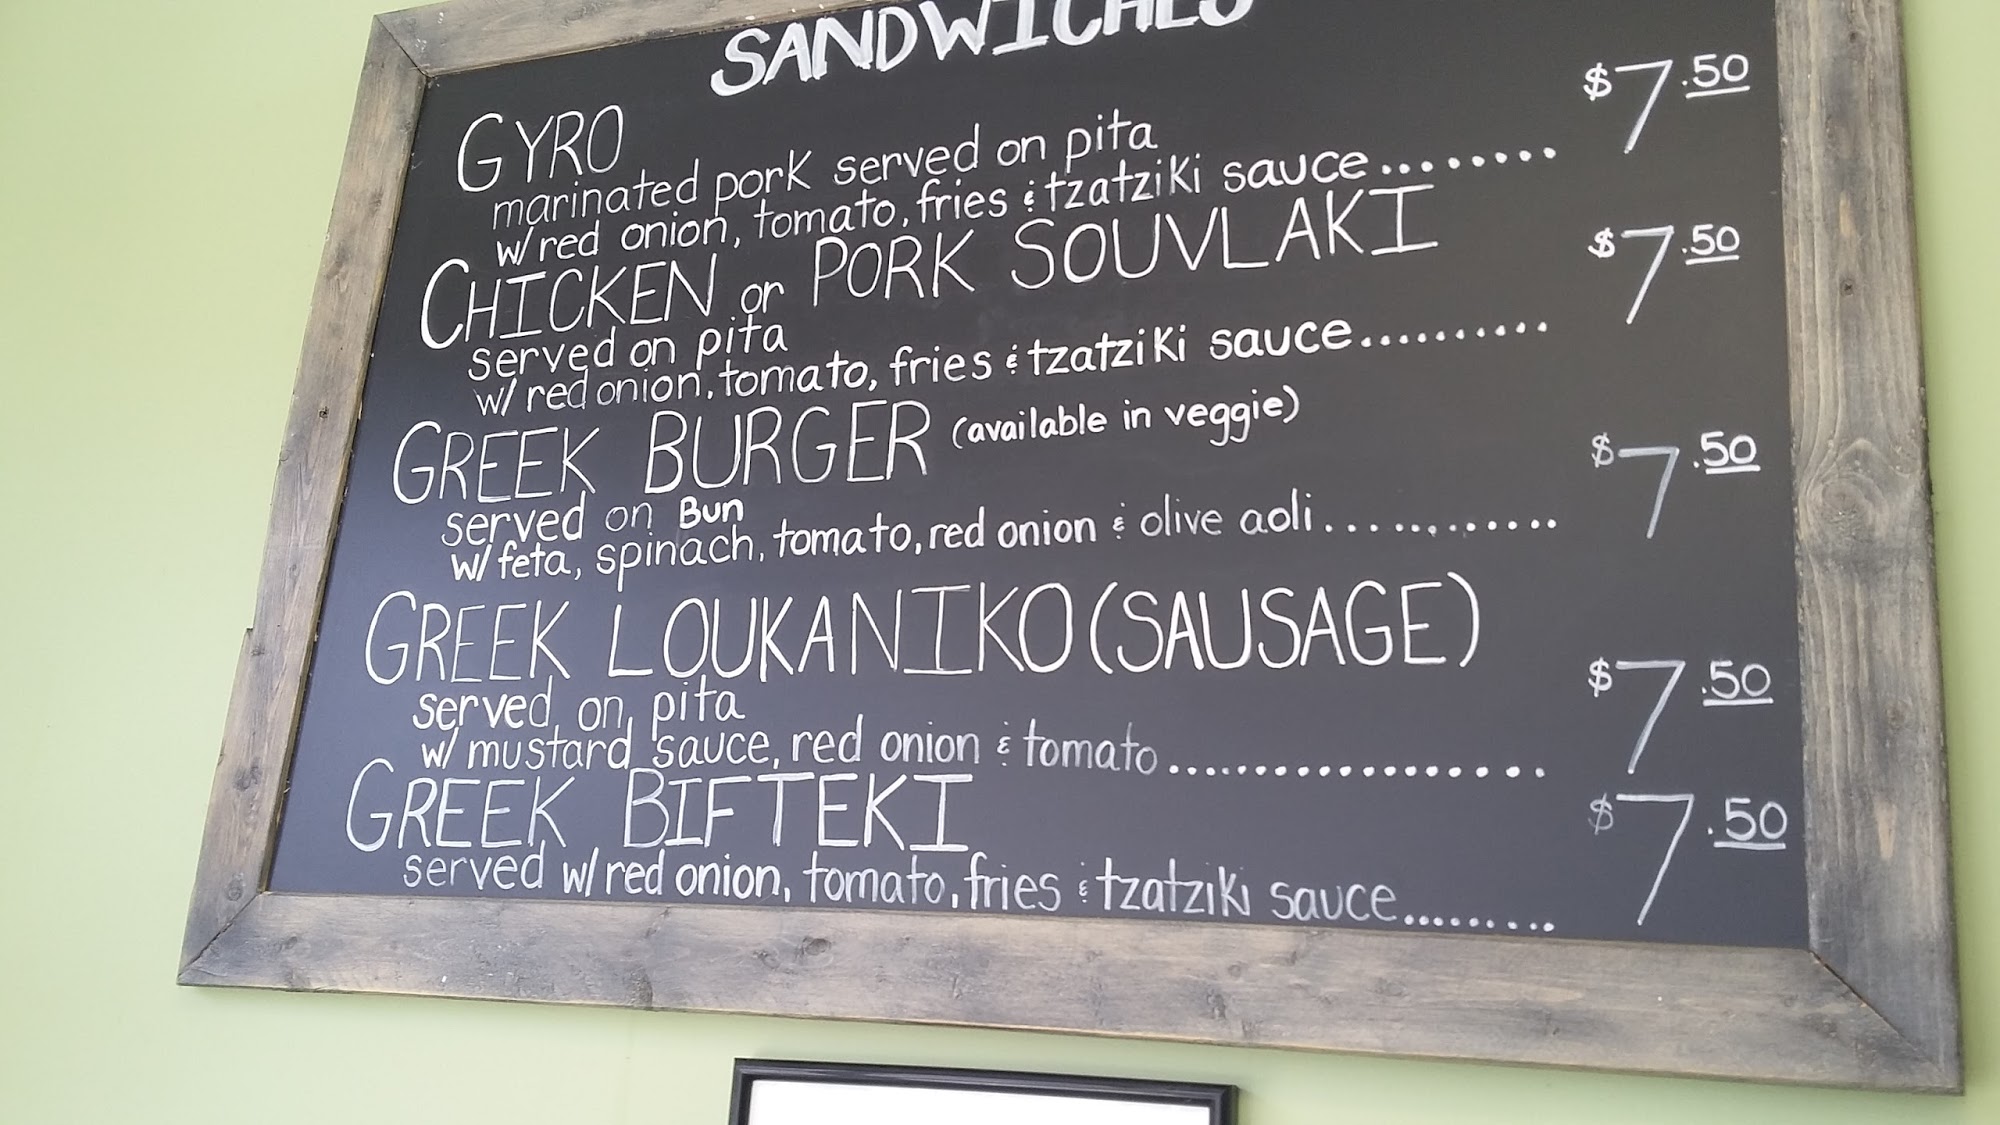 SANDWICHES
GYRO
marinated pork served on pita
w/ red onion, tomato, fries & tzatziki sauce........ $7.50
CHICKEN or PORK SOUVLAKI
served on pita
w/ red onion, tomato, fries & tzatziki sauce.......... $7.50
GREEK BURGER (available in veggie)
served on Bun
w/ feta, spinach, tomato, red onion & olive aoli............. $7.50
GREEK LOUKANIKO (SAUSAGE)
served on pita
w/ mustard sauce, red onion & tomato.................. $7.50
GREEK BIFTEKI
served w/ red onion, tomato, fries & tzatziki sauce......... $7.50